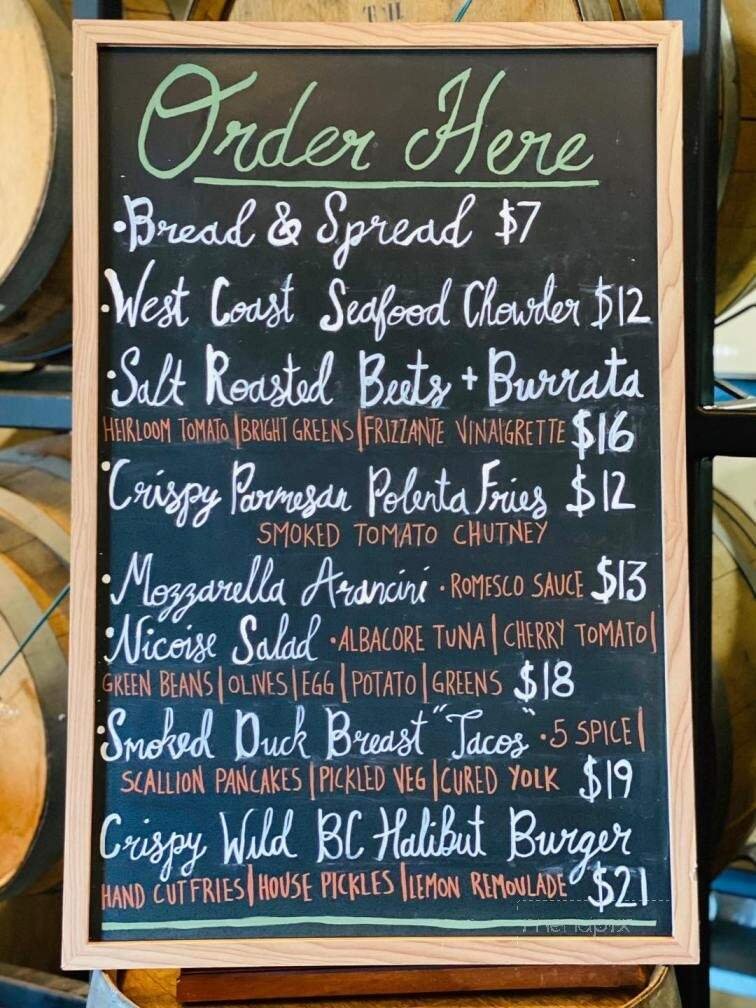 Order Here
•Bread & Spread $7
•West Coast Seafood Chowder $12
•Salt Roasted Beets + Burrata
HEIRLOOM TOMATO | BRIGHT GREENS | FRIZZANTE VINAIGRETTE $16
•Crispy Parmesan Polenta Fries $12
SMOKED TOMATO CHUTNEY
•Mozzarella Arancini • ROMESCO SAUCE $13
•Nicoise Salad • ALBACORE TUNA | CHERRY TOMATO |
GREEN BEANS | OLIVES | EGG | POTATO | GREENS $18
•Smoked Duck Breast "Tacos" • 5 SPICE |
SCALLION PANCAKES | PICKLED VEG | CURED YOLK $19
Crispy Wild BC Halibut Burger
HAND CUT FRIES | HOUSE PICKLES | LEMON REMOULADE $21
menupix